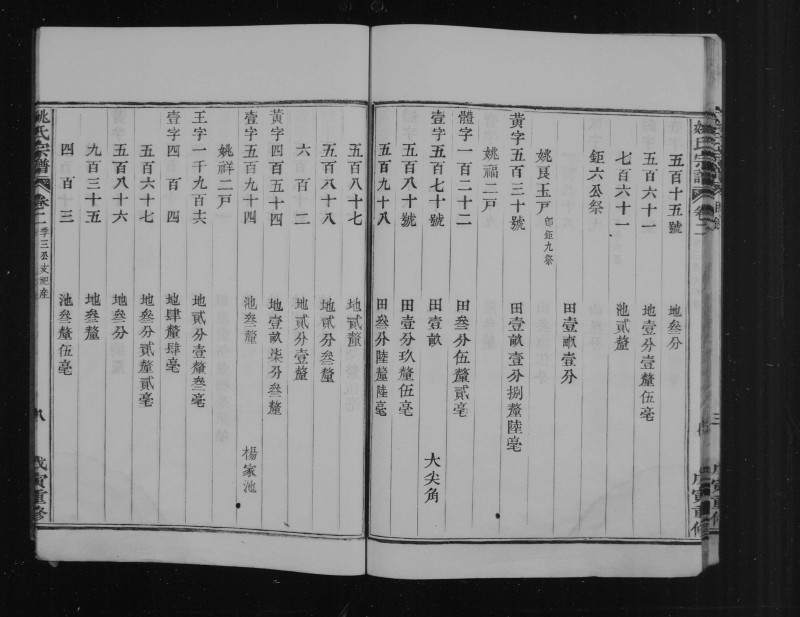 姚氏宗譜 卷二
五百十五號 地叁分
五百六十一 地壹分壹釐伍毫
七百六十一 池貳釐
鉅六公祭
田壹畝壹分
姚良玉戸 即鉅九祭
黃字五百三十號 田壹畝壹分捌釐陸毫
姚福二戸
體字一百二十二 田叁分伍釐貳毫
壹字五百七十號 田壹畝 大尖角
五百八十號 田壹分玖釐伍毫
五百九十八 田叁分陸釐陸毫
庚寅重修
五百八十七 地貳釐
五百八十六 地貳分叁釐
六百十二 地貳分壹釐
黃字四百五十四 地壹畝柒分叁釐
壹字五百九十四 池叁釐 楊家池
姚祥二戸
王字一千九百六 地貳分壹釐叁毫
壹字四百四 地肆釐肆毫
五百六十七 地叁分貳釐貳毫
五百八十六 地叁分
九百三十五 地叁釐
四百三 池叁釐伍毫
姚氏宗譜 卷二 季三公支祀產 八 戊寅重修